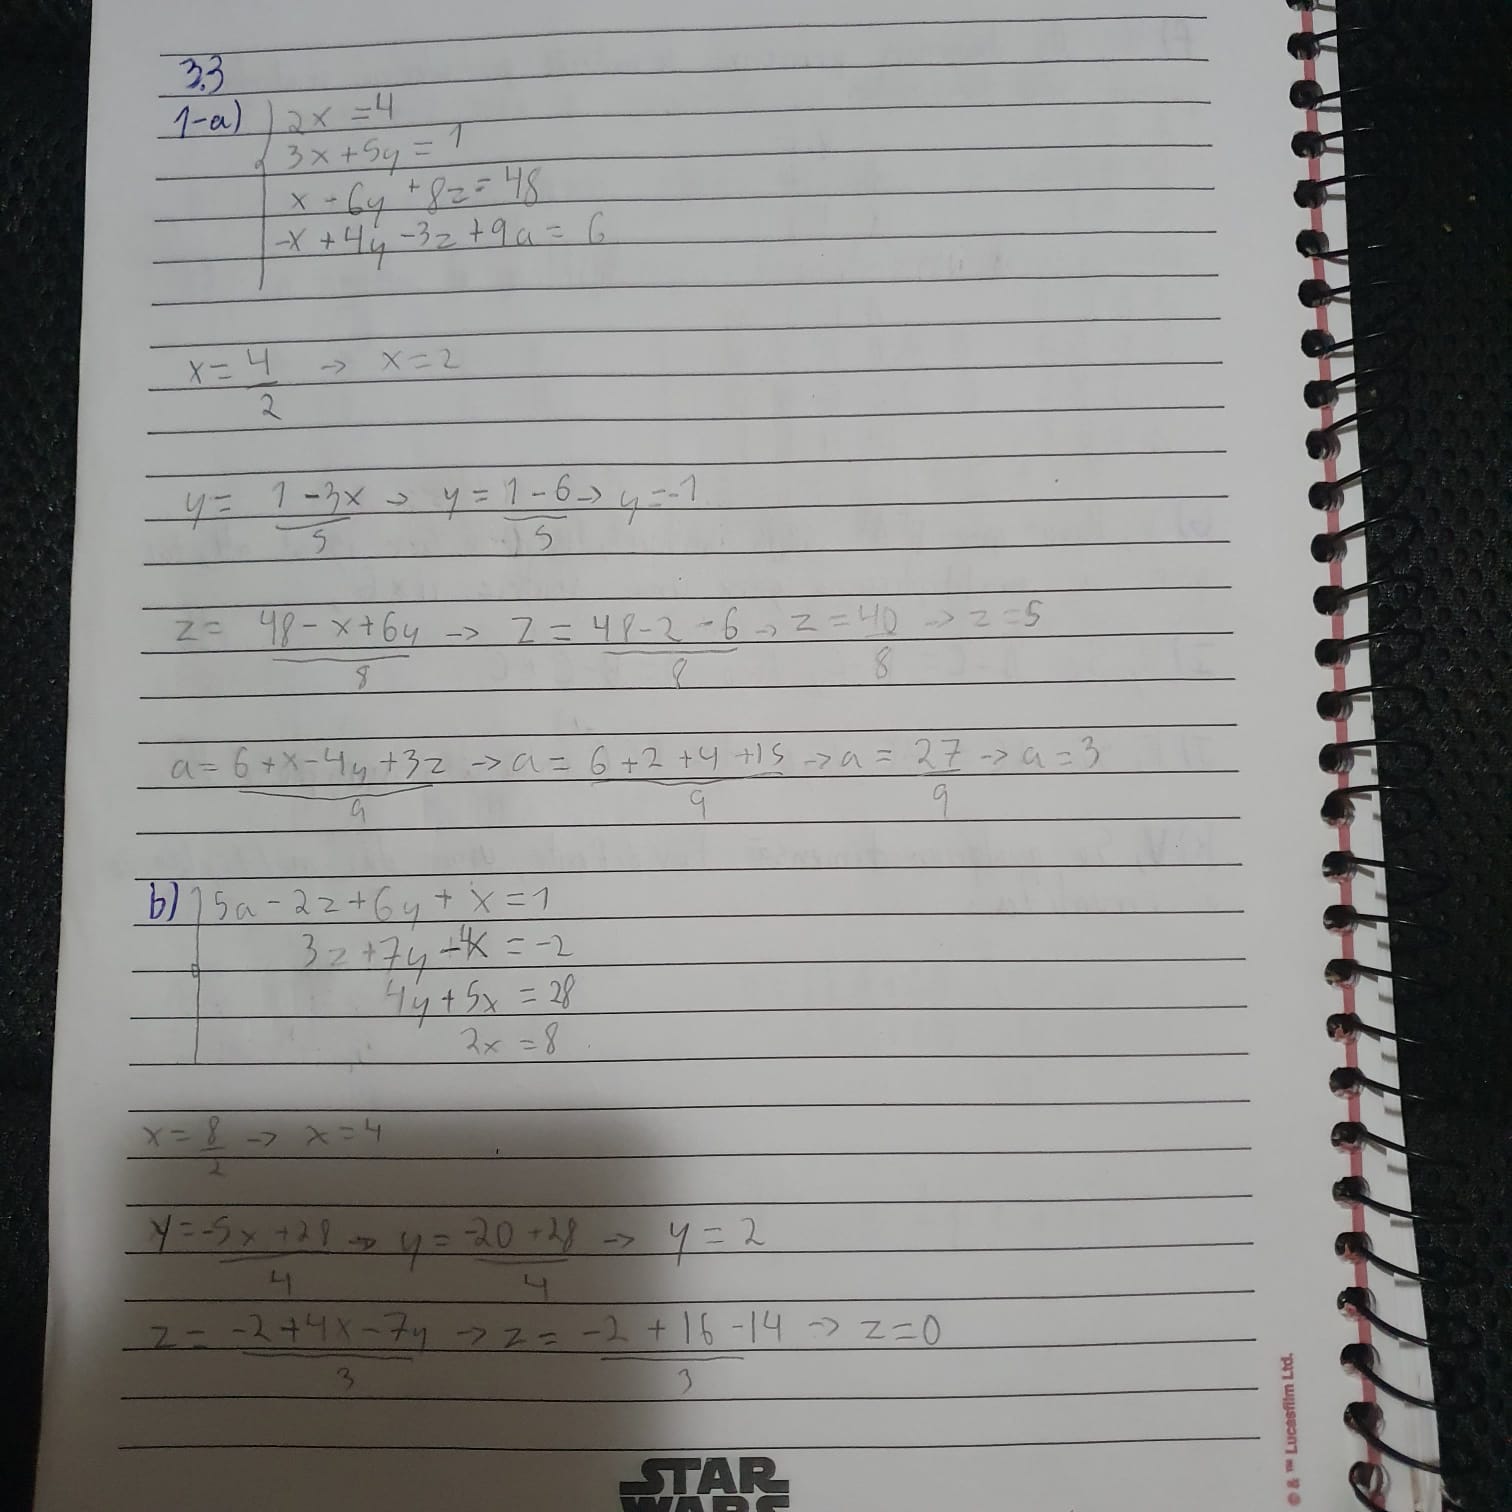 3.3
1-a) 2x = 4
3x + 5y = 1
x - 6y + 8z = 48
-x + 4y - 3z + 9a = 6
x = 4/2 → x = 2
y = 1 - 3x/5 → y = 1 - 6/5 → y = -1
z = 48 - x + 6y/8 → z = 48 - 2 - 6/8 → z = 40/8 → z = 5
a = 6 + x - 4y + 3z/9 → a = 6 + 2 + 4 + 15/9 → a = 27/9 → a = 3
b) 5a - 2z + 6y + x = 1
3z + 7y - 4x = -2
4y + 5x = 28
2x = 8
x = 8/2 → x = 4
y = -5x + 28/4 → y = -20 + 28/4 → y = 2
z = -2 + 4x - 7y/3 → z = -2 + 16 - 14/3 → z = 0
STAR
WARS
© & ™ Lucasfilm Ltd.